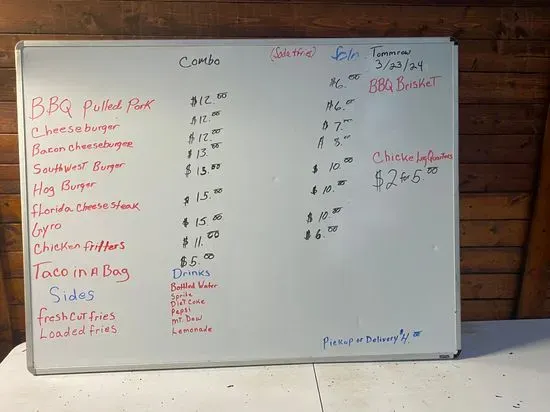 Combo (Soda & fries) Solo Tommrow
3/23/24
$6.00 BBQ BRISKET
BBQ Pulled Pork $12.00 $6.00
Cheeseburger $12.00 $7.00
Bacon cheeseburger $12.00 $8.00
Southwest Burger $13.00
Hog Burger $13.00 $10.00 Chicke Leg Quarters
florida cheesesteak $15.00 $10.00 $2 for 5.00
Gyro $15.00 $10.00
Chicken fritters $11.00 $6.00
Taco in A Bag $5.00
Sides Drinks
fresh cut fries Bottled Water
Loaded fries Sprite
Diet Coke
Pepsi
MT. Dew
Lemonade
Pickup or Delivery $4.00